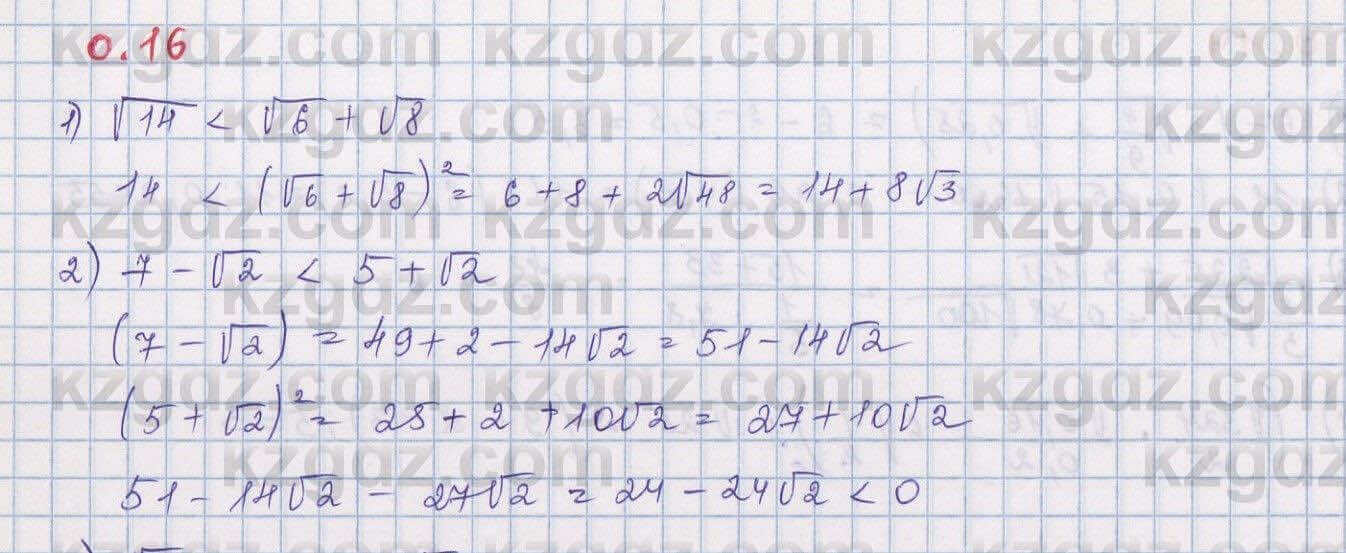 0.16
1) √14 < √6 + √8
14 < (√6 + √8)² = 6 + 8 + 2√48 = 14 + 8√3
2) 7 - √2 < 5 + √2
(7 - √2) = 49 + 2 - 14√2 = 51 - 14√2
(5 + √2)² = 25 + 2 + 10√2 = 27 + 10√2
51 - 14√2 - 27√2 = 24 - 24√2 < 0
kzgdz.com